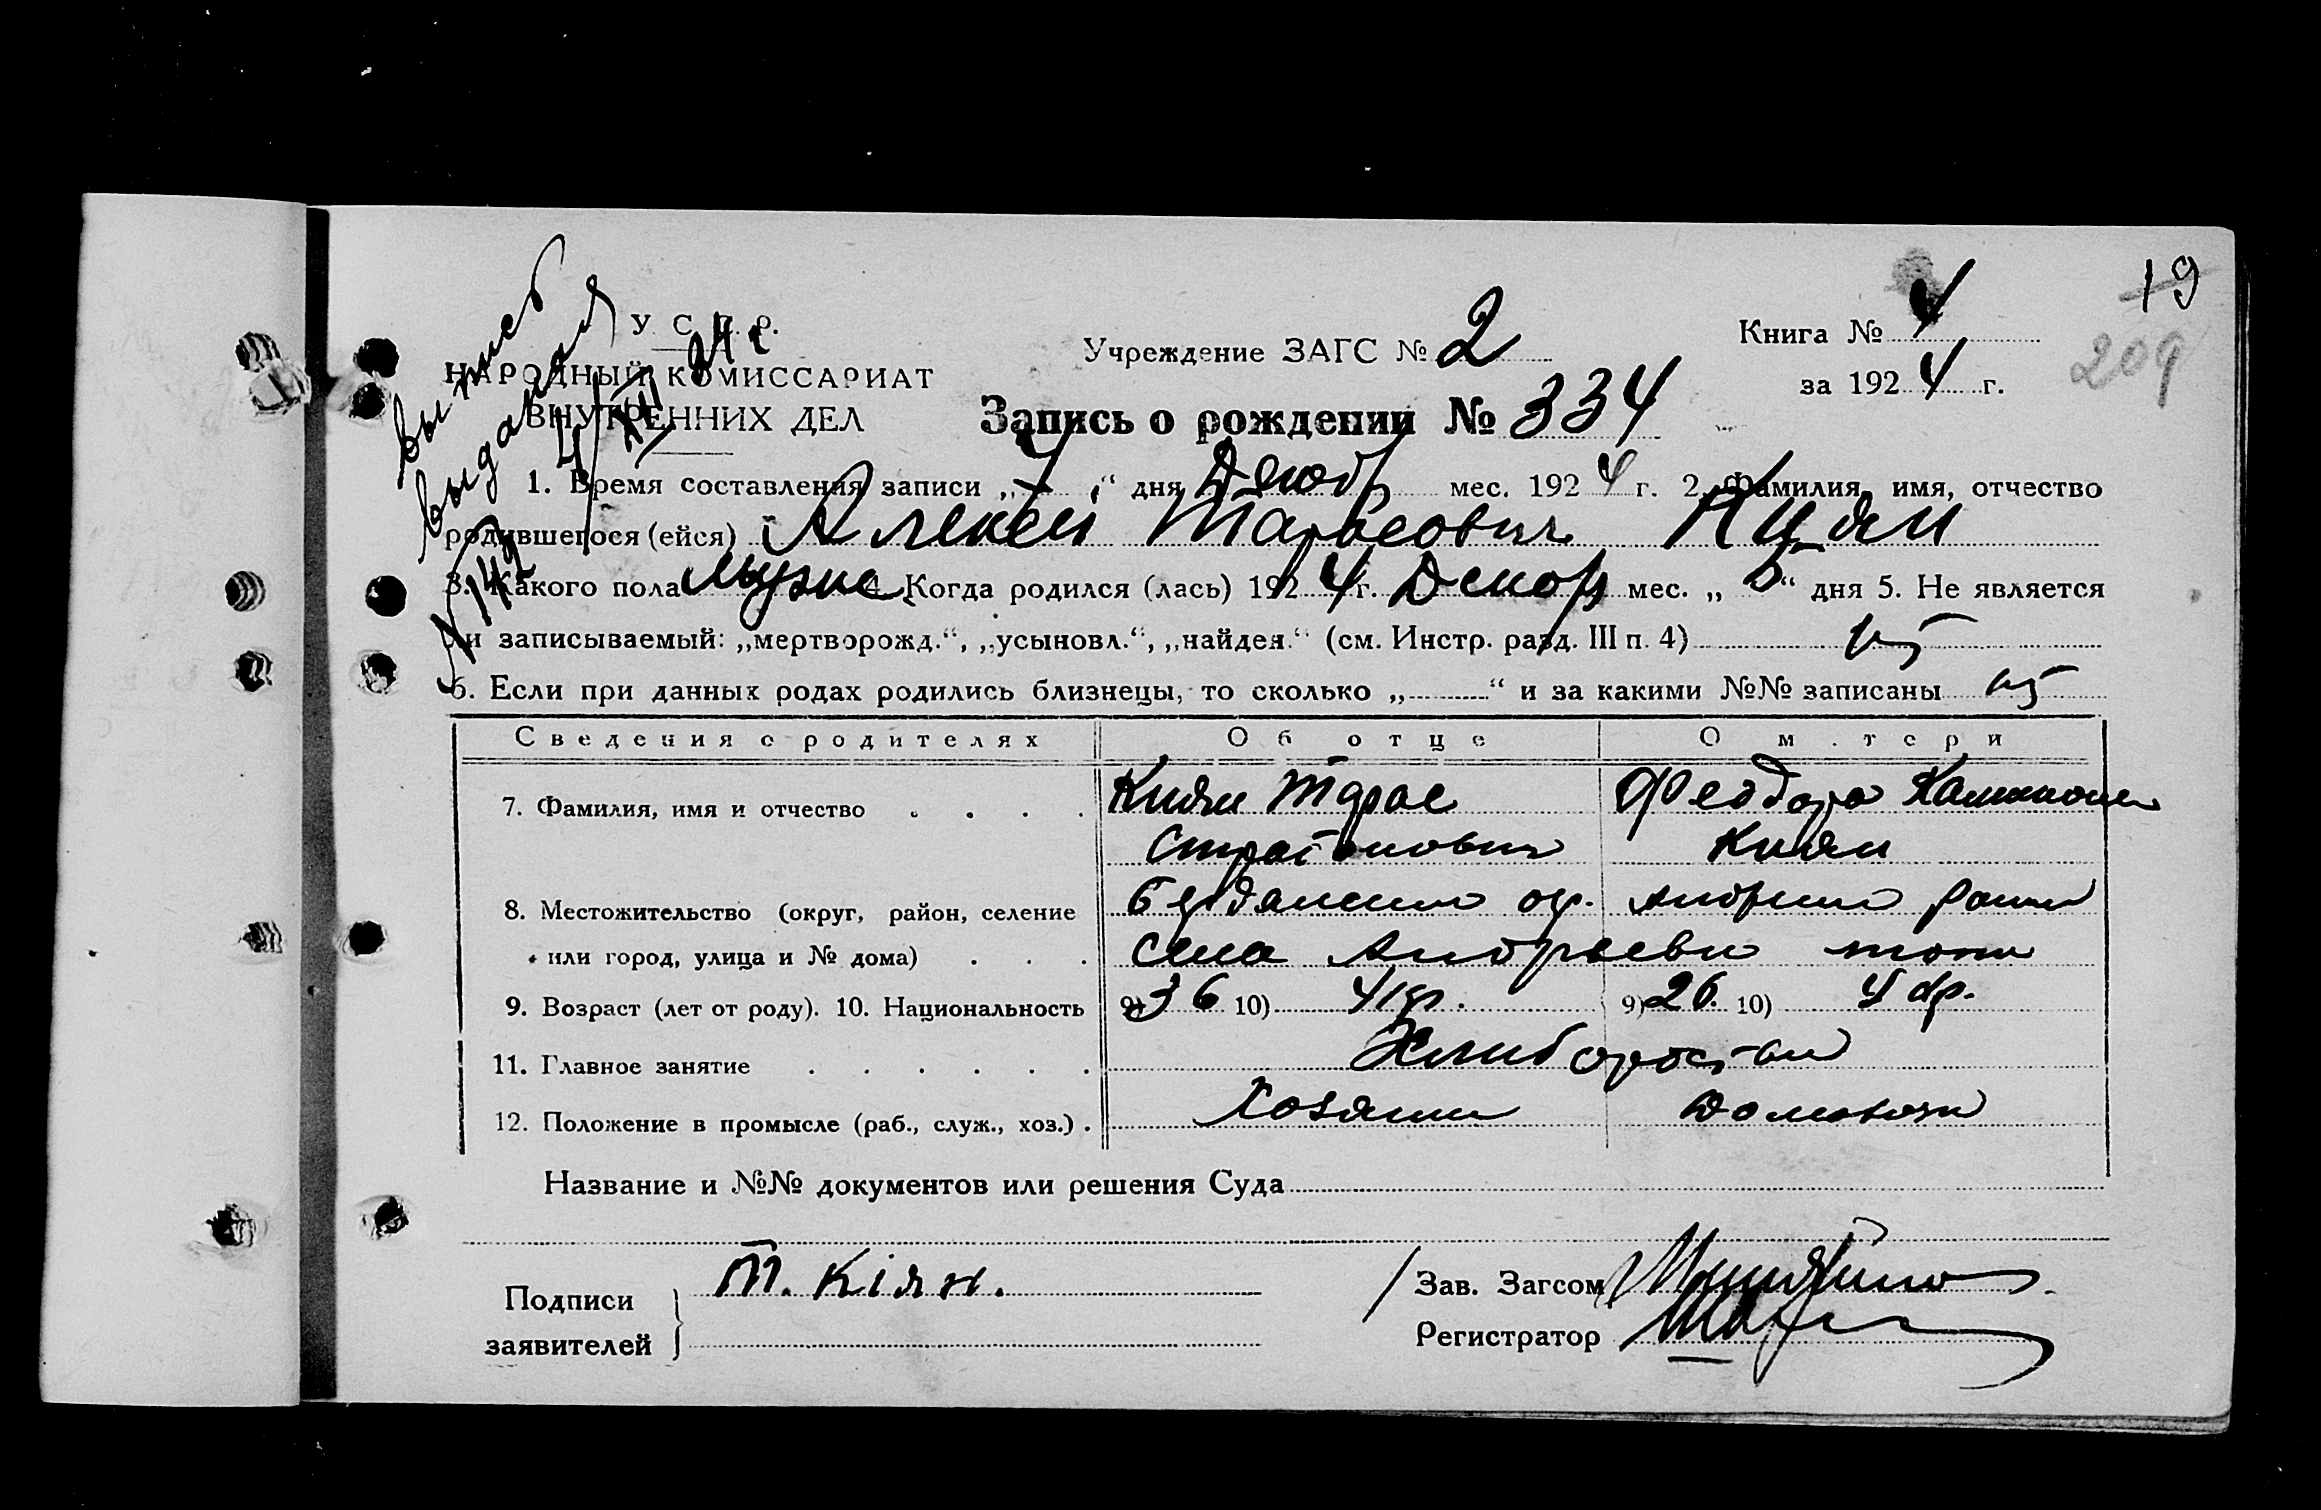 19
209
У. С. Р. Р.
НАРОДНЫЙ КОМИССАРИАТ
ВНУТРЕННИХ ДЕЛ
Выпись
выданая
4/XII 24 г
№ 142
Учреждение ЗАГС № 2
Книга № 4
за 1924 г.
Запись о рождении № 334
1. Время составления записи „ “ дня Декобр мес. 1924 г. 2. Фамилия, имя, отчество
родившегося (ейся) Алексей Тарасович Киян
3. Какого пола мужс 4. Когда родился (лась) 1924 г. Декобр мес. „ “ дня 5. Не является
ли записываемый: „мертворожд.“, „усыновл.“, „найден.“ (см. Инстр. разд. III п. 4)
6. Если при данных родах родились близнецы, то сколько „ “ и за какими №№ записаны
Сведения о родителях Об отце О матери
7. Фамилия, имя и отчество Киян Тарас Феодора
Стратонович Киян
8. Местожительство (округ, район, селение Бердянского окр. район
или город, улица и № дома) села Андреевки
9. Возраст (лет от роду). 10. Национальность 9) 36 10) Укр. 9) 26 10) Укр.
11. Главное занятие Хлиборобство
12. Положение в промысле (раб., служ., хоз.) Хозяин
Название и №№ документов или решения Суда
Подписи заявителей Т. Кіян.
Зав. Загсом
Регистратор